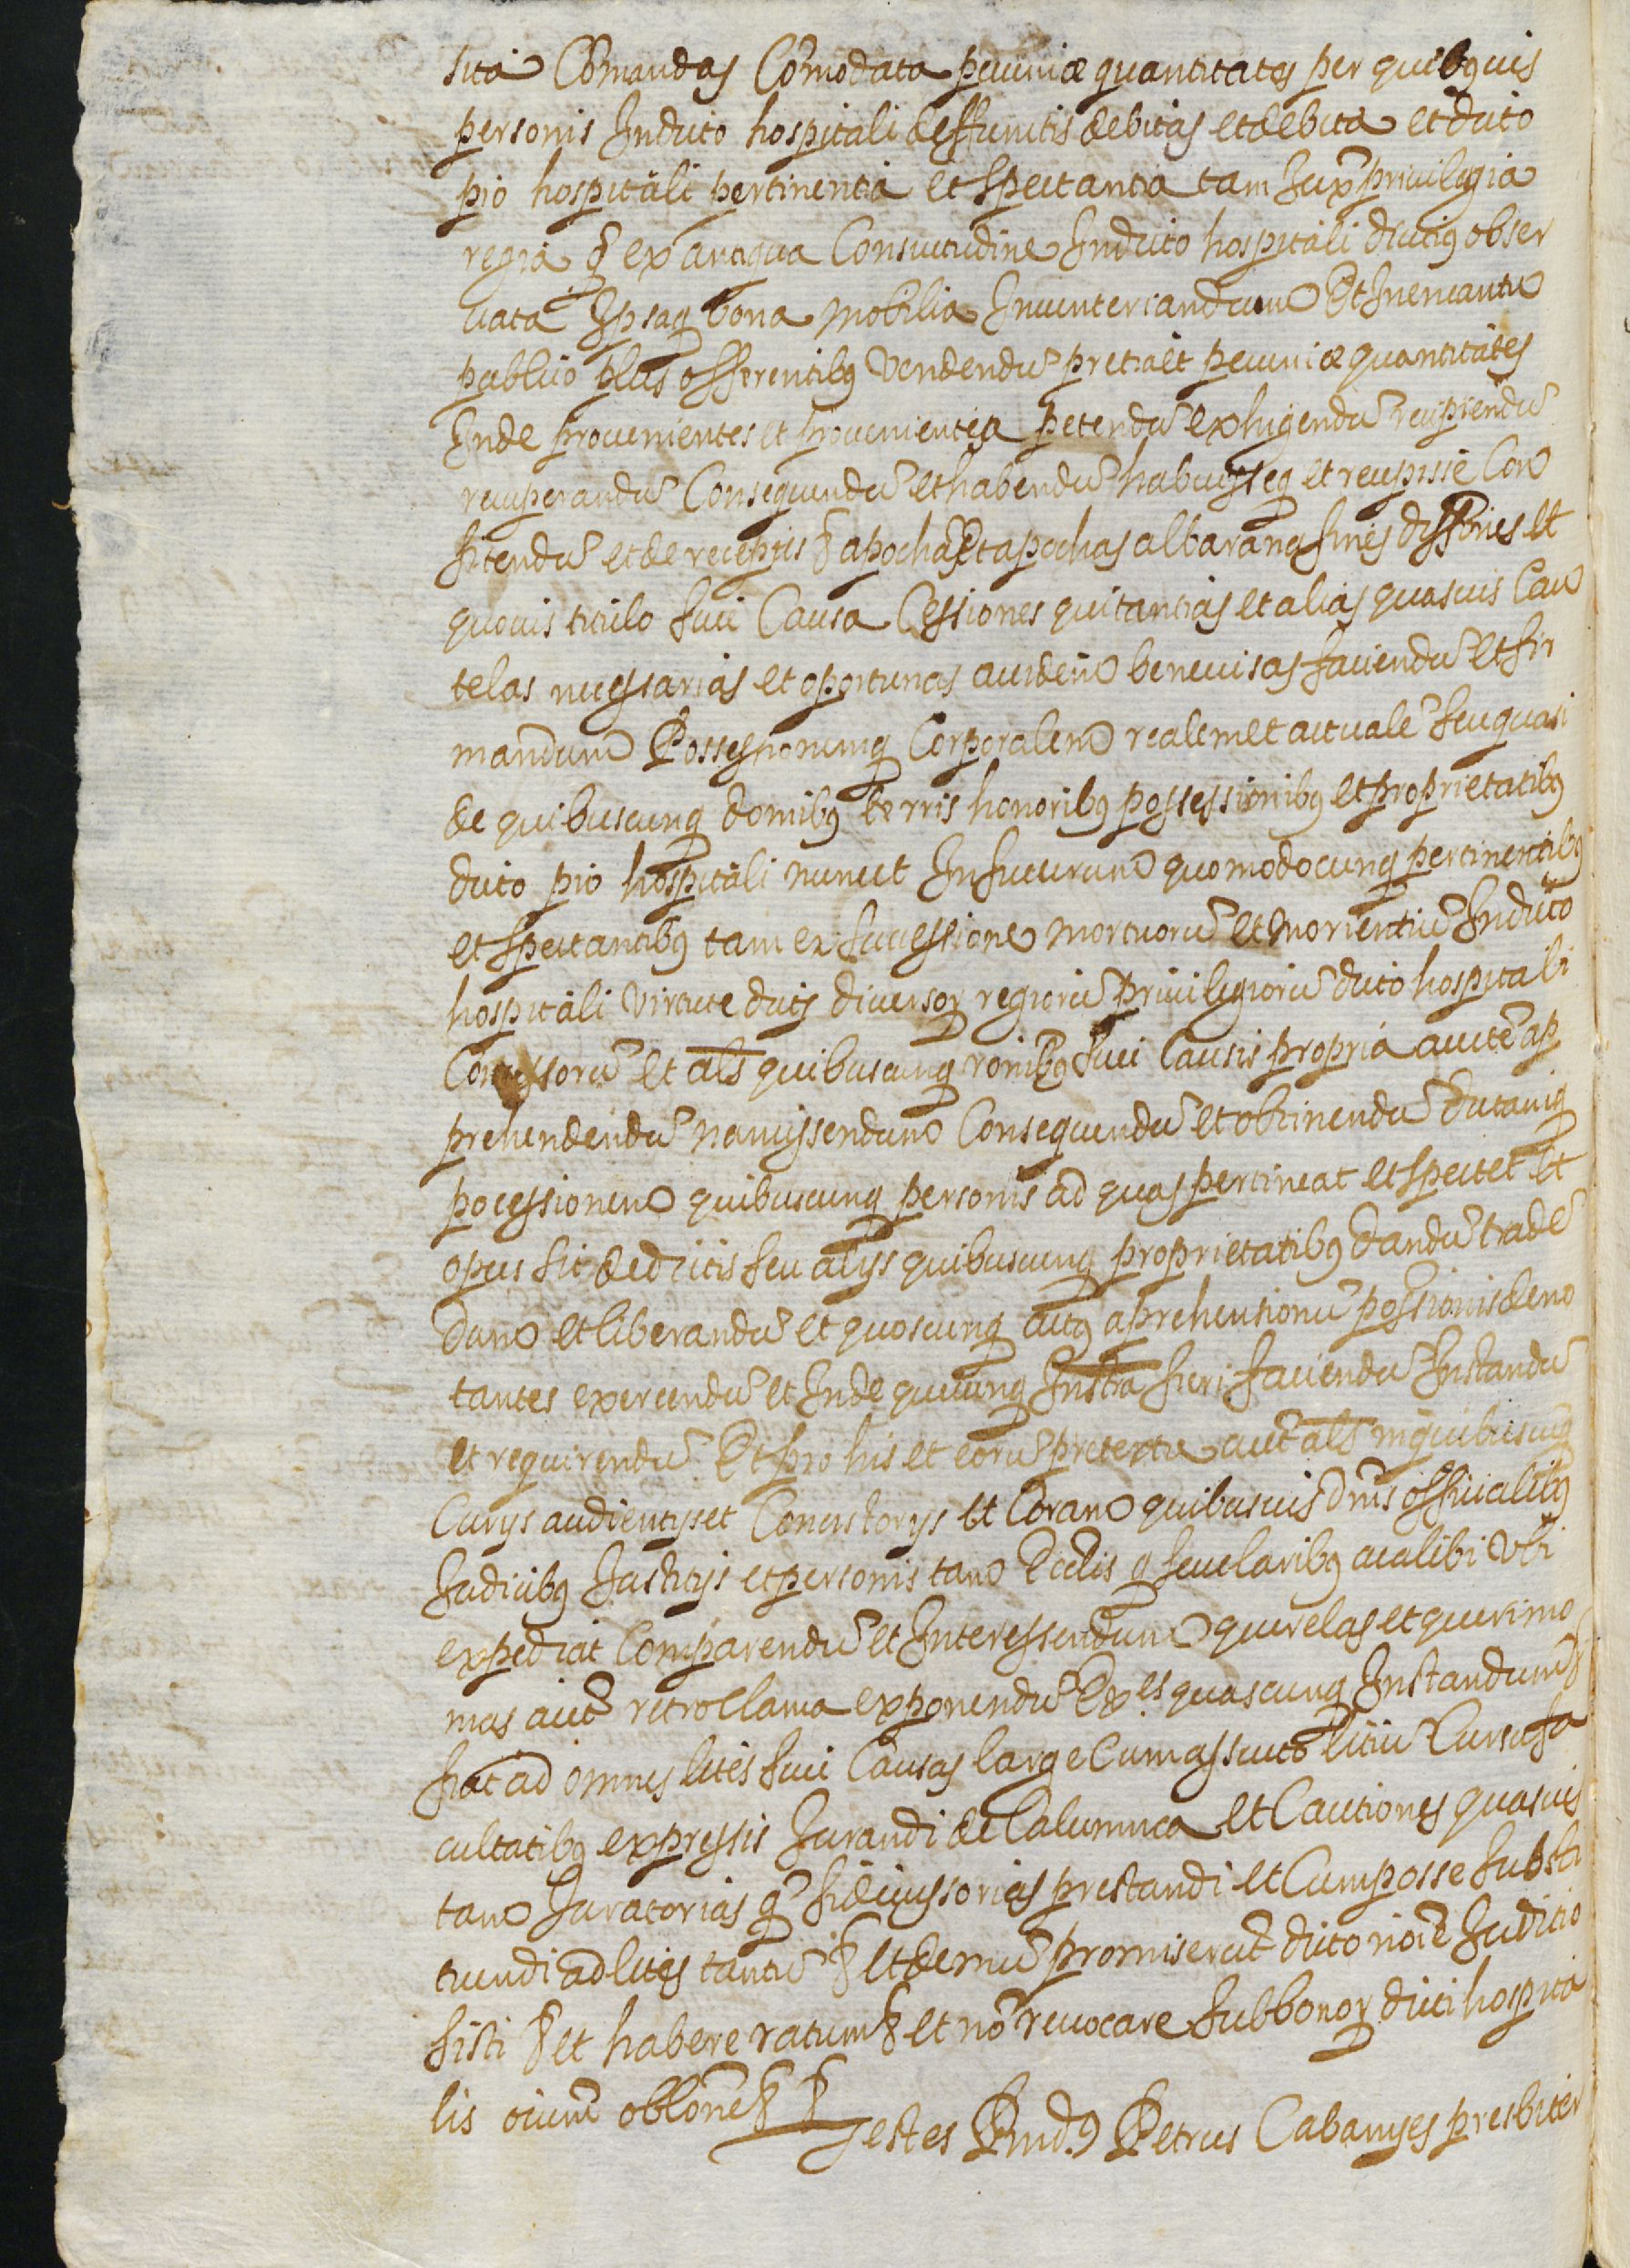 sita Comandas Comodata pecuniæ quantitates per quibusuis
personis In dicto hospitali deffunctis debitas et debita et dicto
pio hospitali pertinentia et spectantia tam Iux.ª priuilegia
regia q̃ ex antiqua Consuetudine In dicto hospitali diutius obser
uata Ipsaq bona mobilia Inuenteriandum Et In encantu
publico plus offerentibus vendendũ pretia et pecuniæ quantitates
Inde prouenientes et prouenientia petendũ exhigendũ recipiendũ
recuperandũ Consequendũ et habendũ habuisseq et recepisse Con
fitendũ et de receptis &c apocham et apochas albarana fines diffiones et
quouis titulo siue Causa Cessiones quitantias et alias quasuis Cau
telas necessarias et oportunas ac eidem beneuisas faciendũ et fir
mandum Possessionemq Corporalem realem et actualẽ seu quasi
de quibuscunq domibus terris honoribus possessionibus et proprietatibus
dicto pio hospitali nunc et In futurum quomodocunq pertinentibus
et spectantibus tam ex successione mortuorũ et morientiũ In dicto
hospitali virtute dictis diuersor regiorũ priuilegiorũ dicto hospitali
Concessorũ et als quibuscunq ronibus siue Causis propria auctẽ ap
prehendendũ nancissendum Consequendũ et obtinendũ dictamq
pocessionem quibuscunq personis ad quas pertineat et spectet et
opus sit de dictis seu alijs quibuscunq proprietatibus dandũ tradẽ
dum et liberandũ et quoscunq actus aprehentionũ possionis deno
tantes exercendũ et Inde quecunq Instra fieri faciendũ Instandũ
et requirendũ Et pro his et eorũ pretextu aut als in quibuscunq
Curijs audientijs et Concistorijs et Coram quibusuis dnis officialibus
Iudicibus Iustitijs et personis tam Ecclis q̃ secularibus ac alibi vbi
expediat Comparendũ et Interessendum querelas et querimo
nias aut retroclama exponendũ Ex.es quascunq Instandum &c
fiat ad omnes lites siue Causas large cum assueto litiũ Cursu fa
cultatibus expressis Iurandi de Calumnia et Cautiones quasuis
tam Iuratorias q̃ fideiussorias prestandi et Cum posse substi
tuendi ad lites tantũ &c et demũ promiserũt dicto noiẽ Iudicio
sisti &c et habere ratum &c et nõ reuocare sub bonor dicti hospita
lis oium oblone &c &c Testes Rnd.us Petrus Cabanyes presbiter